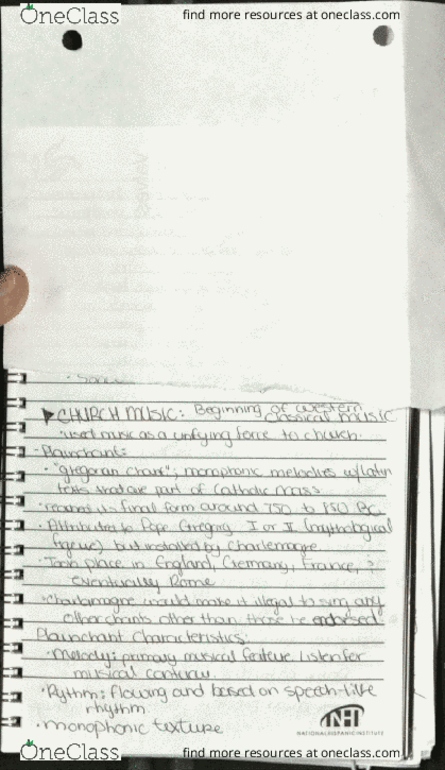 OneClass
find more resources at oneclass.com
CHURCH MUSIC: Beginning of western
classical music
used music as a unifying force to church.
Plainchant:
"gregorian chant"; monophonic melodies w/latin
texts that are part of Catholic mass
reached its final form around 750 to 850 BC
Attributed to Pope Gregory I or II (mythological
figure) but installed by Charlemagne
Took place in England, Germany, France, ?
eventually Rome
Charlamagne would make it illegal to sing any
other chants other than those he endorsed
Plainchant Characteristics:
Melody: primary musical feature. Listen for
musical contour.
Rythm: flowing and based on speech-like
rhythm
monophonic texture
NHI
NATIONAL HISPANIC INSTITUTE
OneClass
find more resources at oneclass.com